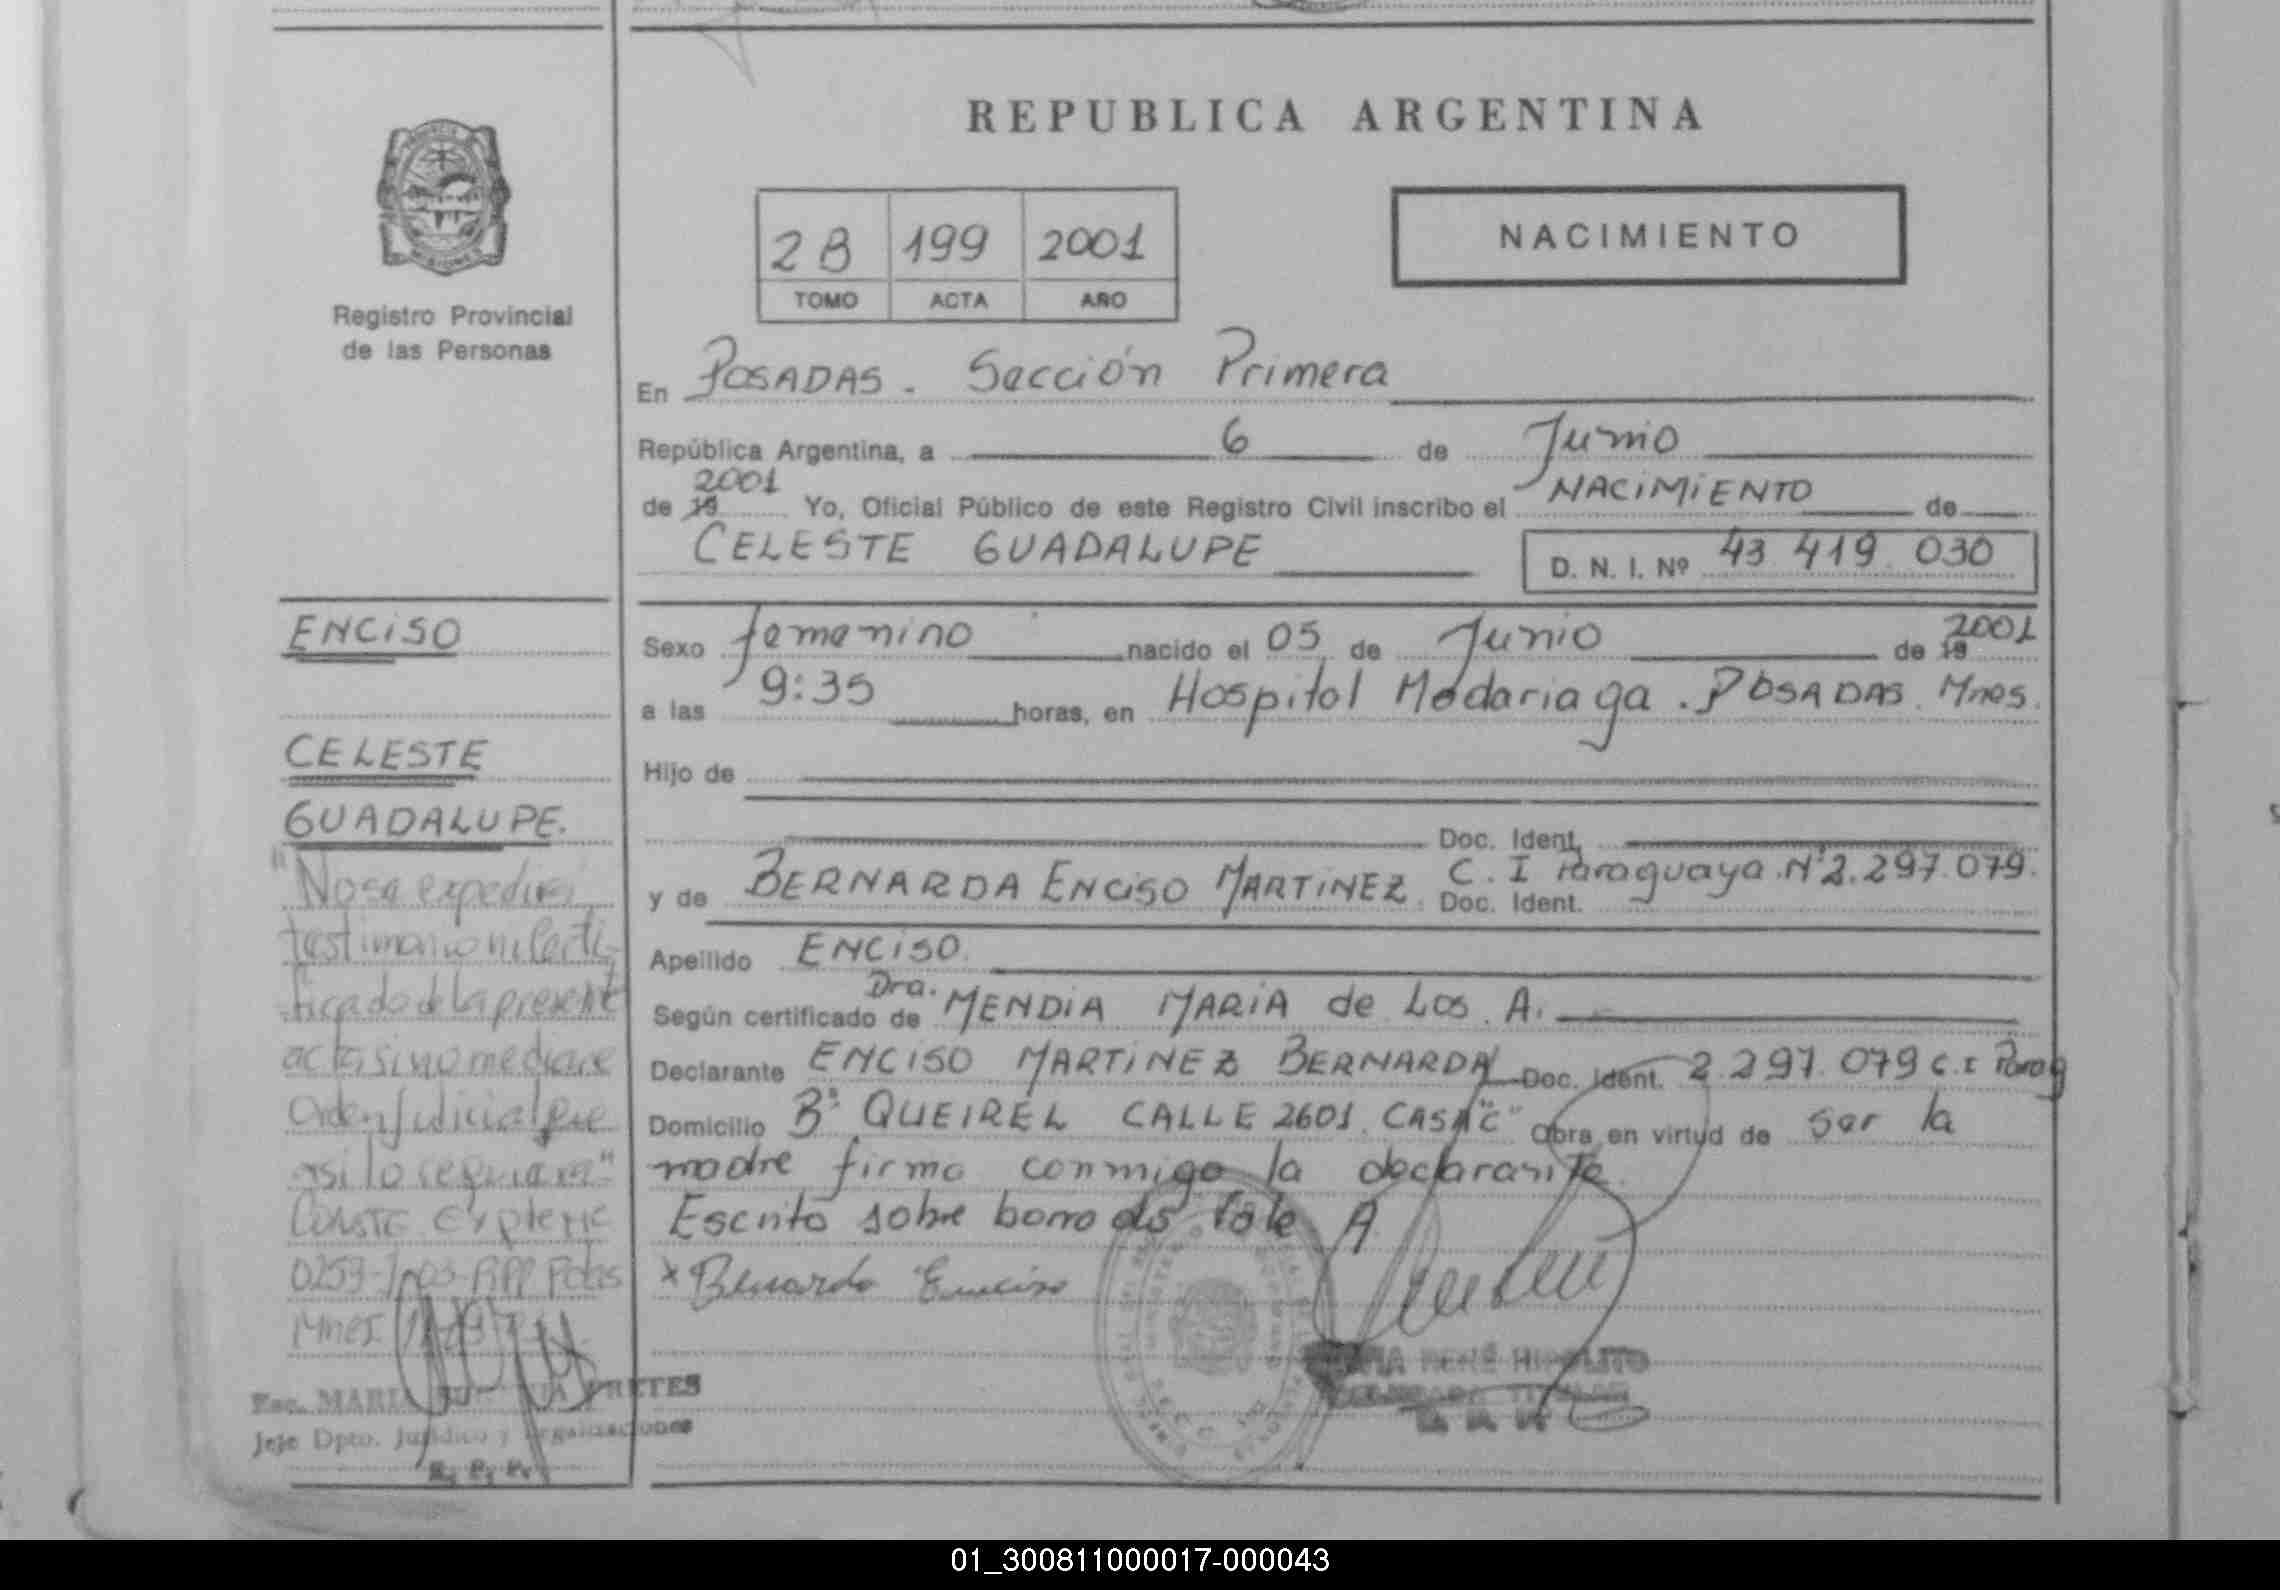 REPUBLICA ARGENTINA
NACIMIENTO
2B 199 2001
TOMO ACTA AÑO
Registro Provincial
de las Personas
En POSADAS. Sección Primera
República Argentina, a 6 de Junio
de 19 2001 Yo, Oficial Público de este Registro Civil inscribo el NACIMIENTO de
CELESTE GUADALUPE D. N. I. Nº 43 419 030
ENCISO
CELESTE
GUADALUPE.
Sexo femenino nacido el 05 de Junio de 19 2001
a las 9:35 horas, en Hospital Madariaga. POSADAS. Mnes.
Hijo de
Doc. Ident.
y de BERNARDA ENCISO MARTINEZ. Doc. Ident. C. I Paraguaya. Nº 2.297.079.
Apellido ENCISO.
Según certificado de Dra. MENDIA MARIA de Los. A.
Declarante ENCISO MARTINEZ BERNARDA Doc. Ident. 2.297.079 C. I Parag
Domicilio Bº QUEIREL CALLE 2601. CASA "C" Obra en virtud de ser la
madre firma conmigo la declarante.
Escrito sobre borrado Vale A
x Bernarda Enciso
"No se expedirá
testimonio ni certi-
ficado de la presente
acta si no mediare
Orden Judicial que
así lo requiera"
CONSTE Expte
Mnes.
RENÉ HIPOLITO
Esc. MARIA PRETES
Jefe Dpto. Jurídico y Legalizaciones
R. P. P.
01_300811000017-000043